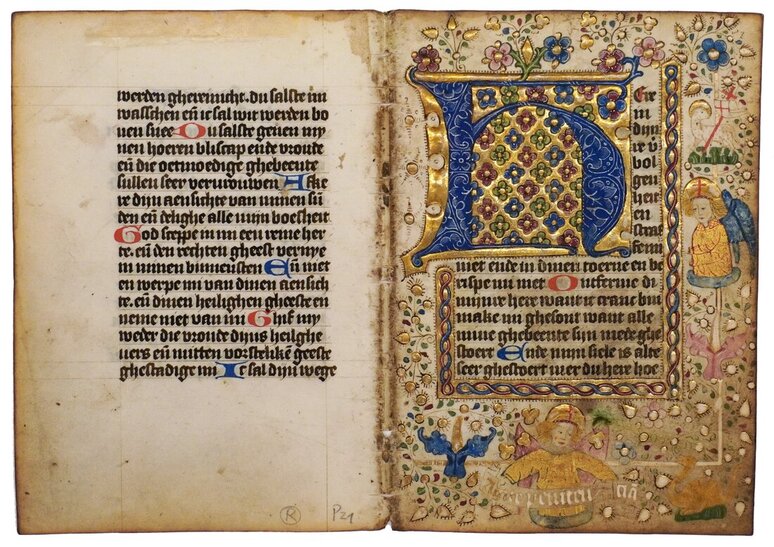 werden ghereinicht. du salste mi
wasschen eñ ic sal wit werden bo
uen snee Du salste geuen my
nen hoeren bliscap ende vroude
eñ die oetmoedige ghebeente
sullen seer verurouwen Afke
re dijn aensichte van minen sun
den eñ delighe alle mijn boesheit
God sceppe in mi een reine her
te. eñ den rechten gheest vernye
in minen binnensten Eñ niet
en werpe mi van dinen aensich
te. eñ dinen heilighen gheeste en
neme niet van mi Ghif my
weder die vroude dijns heilghe
uers eñ mitten vorstelikē geeste
ghestadige mi Ic sal dijn wege
Here
in
dijn
re v
bol
gen
heit
en
straf
fe mi
niet ende in dinen toerne en be
rispe mi niet Ontferme di
mijnre here want ic cranc bin
make mi ghesont want alle
mine ghebeente sijn mede ghe
stoert Ende mijn siele is alte
seer ghestoert mer du here hoe
R P21